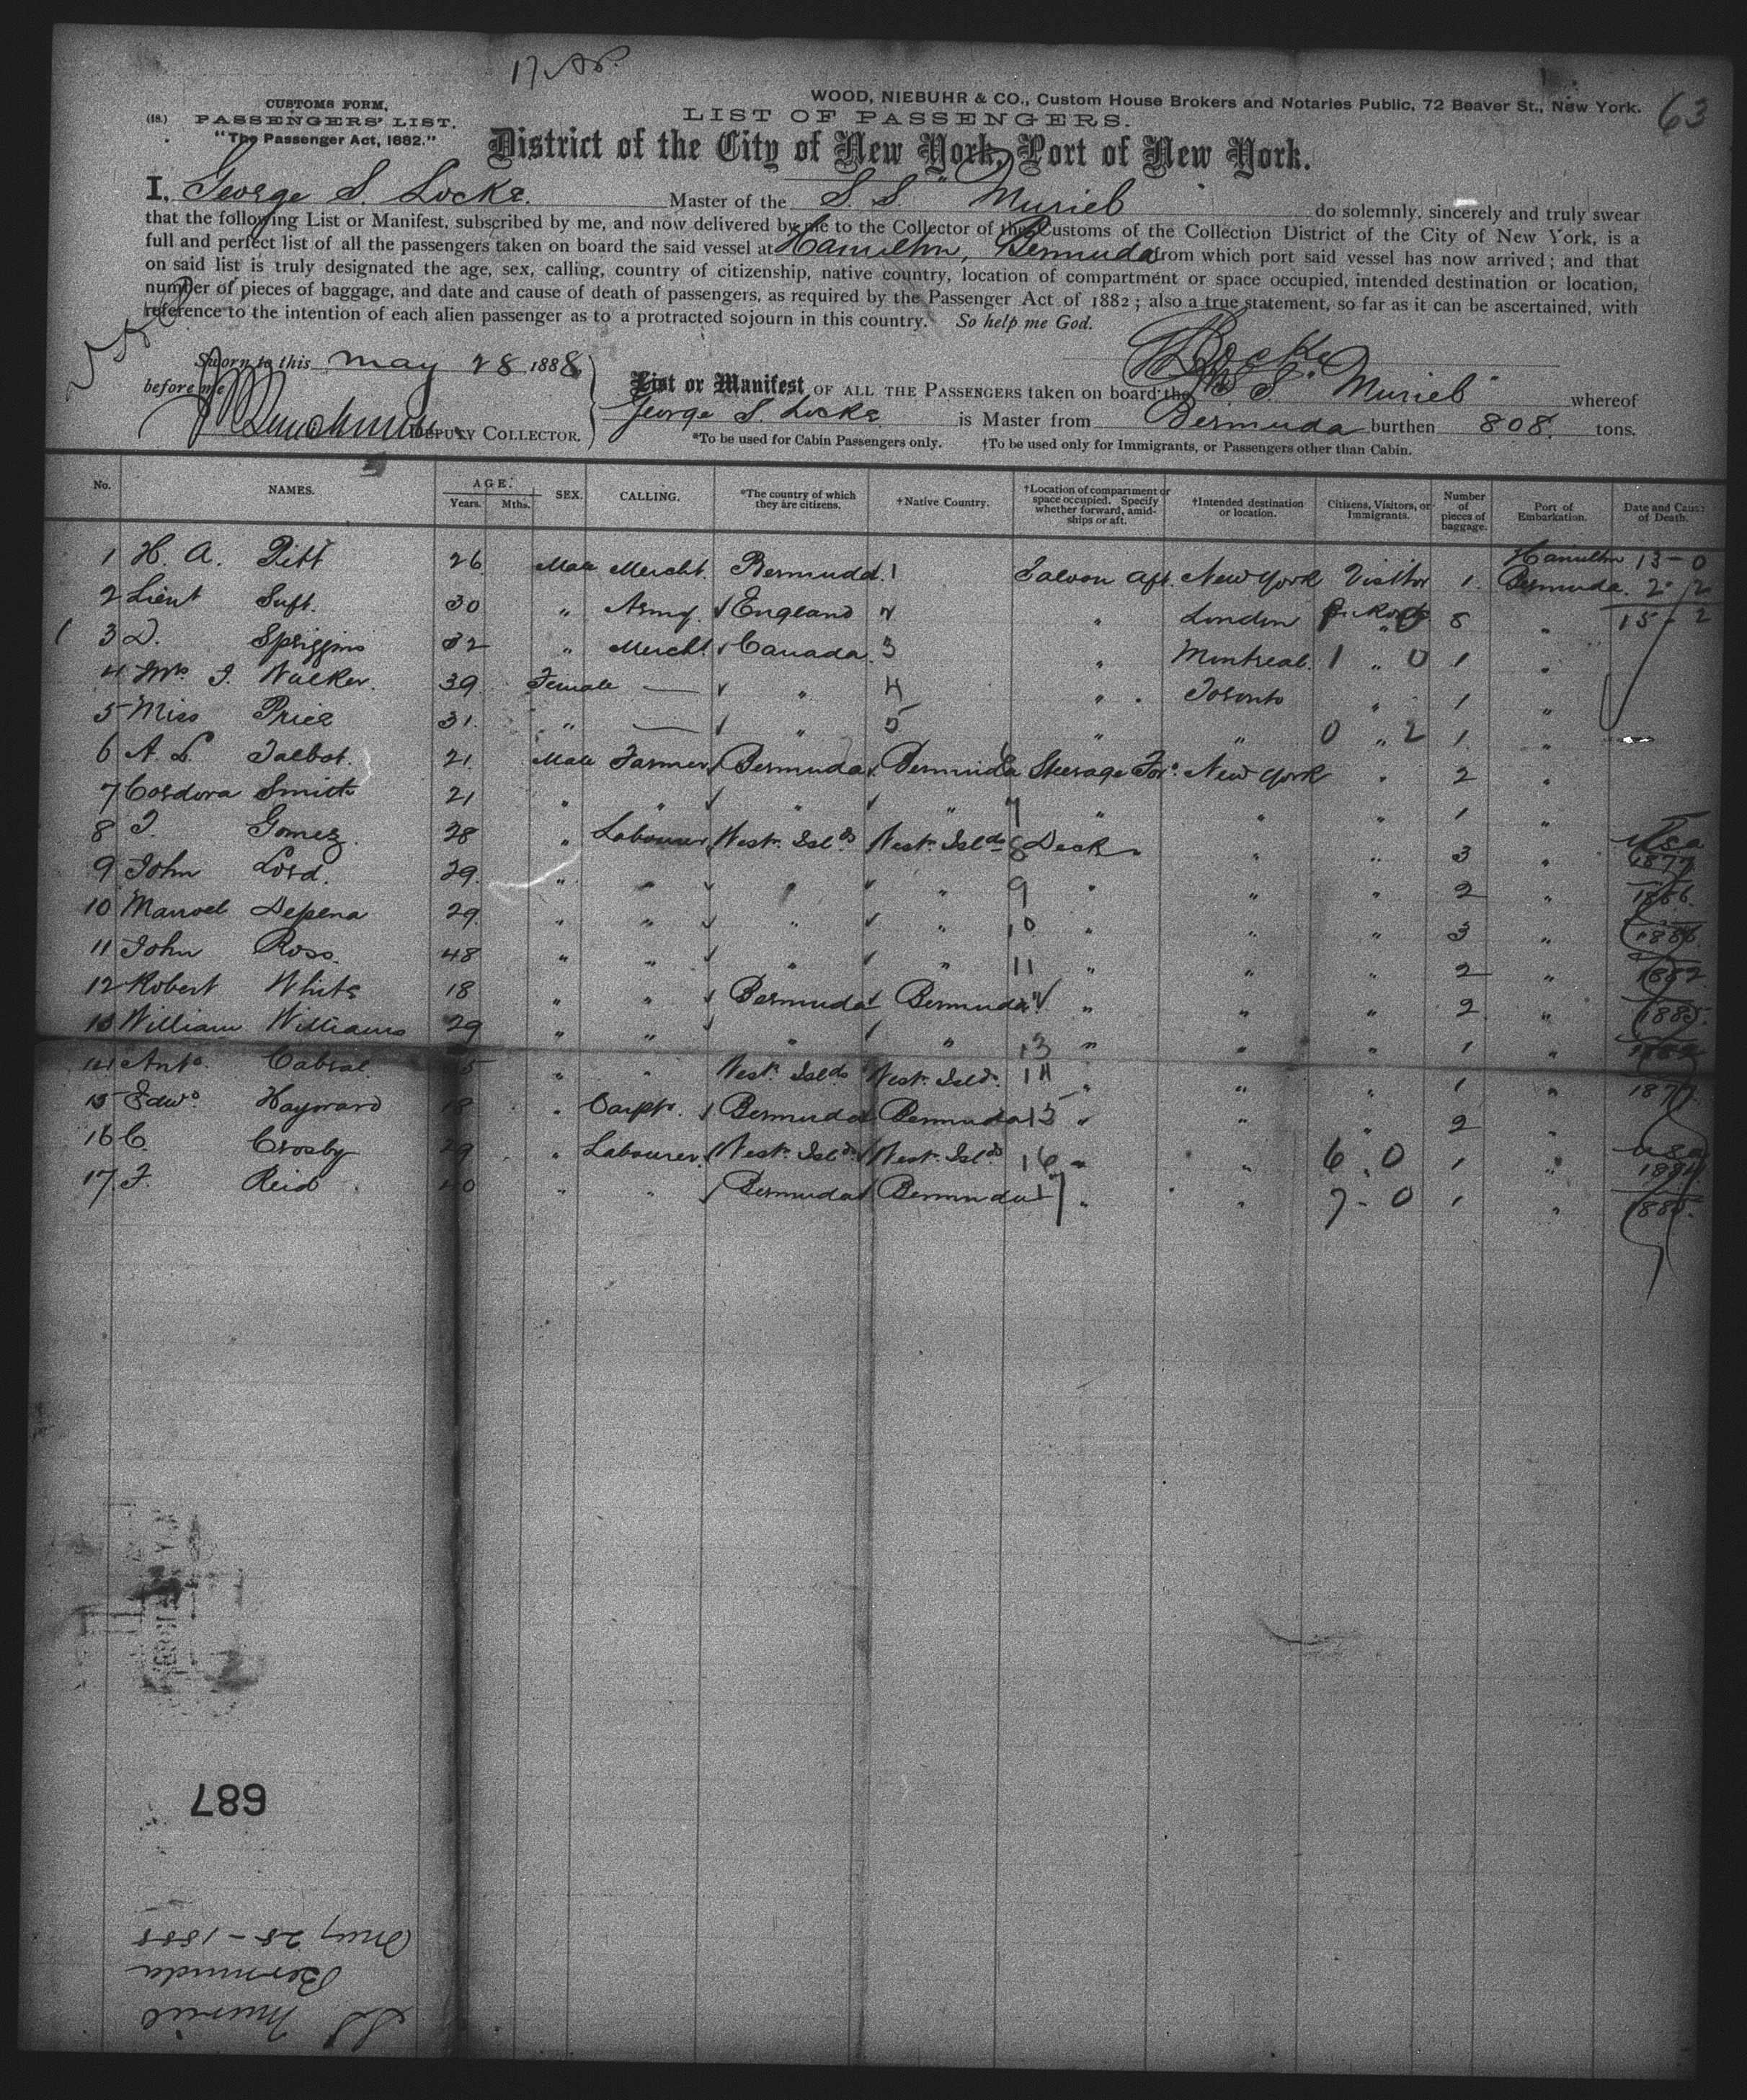 17
WOOD, NIEBUHR & CO., Custom House Brokers and Notaries Public, 72 Beaver St., New York.
63
CUSTOMS FORM,
(18.) PASSENGERS' LIST.
"The Passenger Act, 1882."
LIST OF PASSENGERS.
District of the City of New York, Port of New York.
I, George S. Locke. Master of the S. S. "Muriel" do solemnly, sincerely and truly swear
that the following List or Manifest, subscribed by me, and now delivered by me to the Collector of the Customs of the Collection District of the City of New York, is a
full and perfect list of all the passengers taken on board the said vessel at Hamilton, Bermuda from which port said vessel has now arrived; and that
on said list is truly designated the age, sex, calling, country of citizenship, native country, location of compartment or space occupied, intended destination or location,
number of pieces of baggage, and date and cause of death of passengers, as required by the Passenger Act of 1882; also a true statement, so far as it can be ascertained, with
reference to the intention of each alien passenger as to a protracted sojourn in this country. So help me God.
Locke
Sworn to this May 28 1888
before me
DEPUTY COLLECTOR.
List or Manifest OF ALL THE PASSENGERS taken on board the S S "Muriel" whereof
George S. Locke is Master from Bermuda burthen 808. tons.
*To be used for Cabin Passengers only. †To be used only for Immigrants, or Passengers other than Cabin.
No. NAMES. AGE. Years. Mths. SEX. CALLING. *The country of which they are citizens. †Native Country. †Location of compartment or space occupied. Specify whether forward, amidships or aft. †Intended destination or location. Citizens, Visitors, or Immigrants. Number of pieces of baggage. Port of Embarkation. Date and Cause of Death.
1 H. A. Pitt 26 Male Mercht. Bermuda. 1 Saloon Aft. New York Visitor 1. Hamilton Bermuda. 13-0
2-2
2 Lieut Suft. 30 " Army. England 2 " London 8 " 15-2
3 D. Spriggins 32 " Mercht. Canada. 3 " Montreal. 1 " 0 1 "
4 Mrs J. Walker. 39 Female — " 4 " Toronto " 1 "
5 Miss Price 31. " — " 5 " " 0 " 2 1. "
6 A. L. Talbot. 21. Male Farmer Bermuda. Bermuda 6 Steerage For. New York " 2 "
7 Cordova Smith 21 " " " " 7 " " " 1 "
8 J. Gomez. 28 " Labourer West. Islds West. Islds 8 Deck " " 3 " USA 1877
9 John Lord. 29. " " " " 9 " " " 2 " 1886.
10 Manoel Depena 29. " " " " 10 " " " 3 " 1886.
11 John Ross. 48 " " " " 11 " " " 2 " 1882
12 Robert White 18 " " Bermuda Bermuda " " " 2 " 1885.
13 William Williams 29 " " " " 13 " " " 1 "
14 Anto. Cabral " " West. Islds West. Islds. 14 " " " 1 " 1877.
15 Edwd. Hayward 18 " Carptr. Bermuda Bermuda 15 " " " 2 "
16 C. Crosby 29 " Labourer. West. Islds West. Islds 16 " " 6 " 0 1 " USA 1884
17. F. Reid. 40 " " Bermuda Bermuda 17 " " 7 - 0 1 " 1885.
687
SS Muriel
Bermuda
May 28-1888